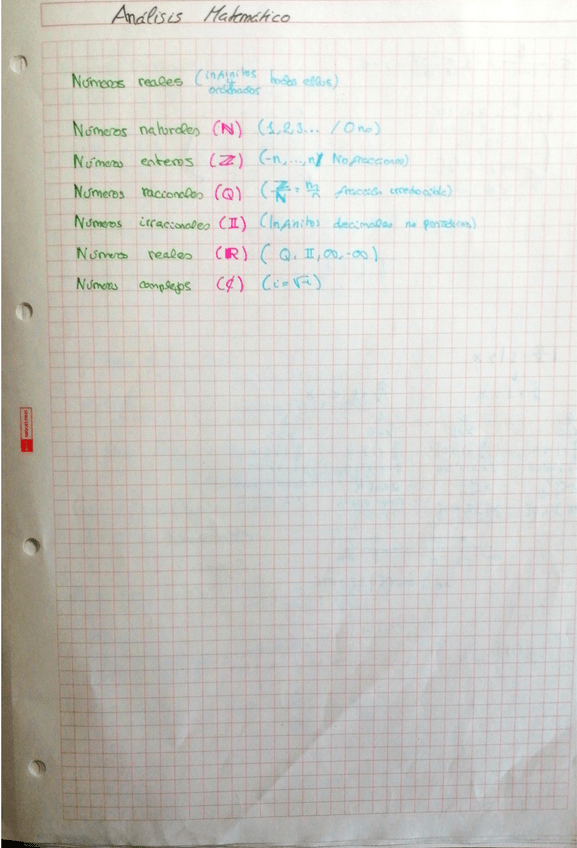 Análisis Matemático
Números reales (infinitos todos ellos)
+
ordenados
Números naturales (ℕ) (1, 2, 3... / 0 no)
Números enteros (ℤ) (-n, ..., n / No fracciones)
Números racionales (Q) (Z/N = m/n fracción irreducible)
Números irracionales (𝕀) (Infinitos decimales no periódicos)
Números reales (ℝ) (Q, 𝕀, ∞, -∞)
Números complejos (₵) (i = √-1)